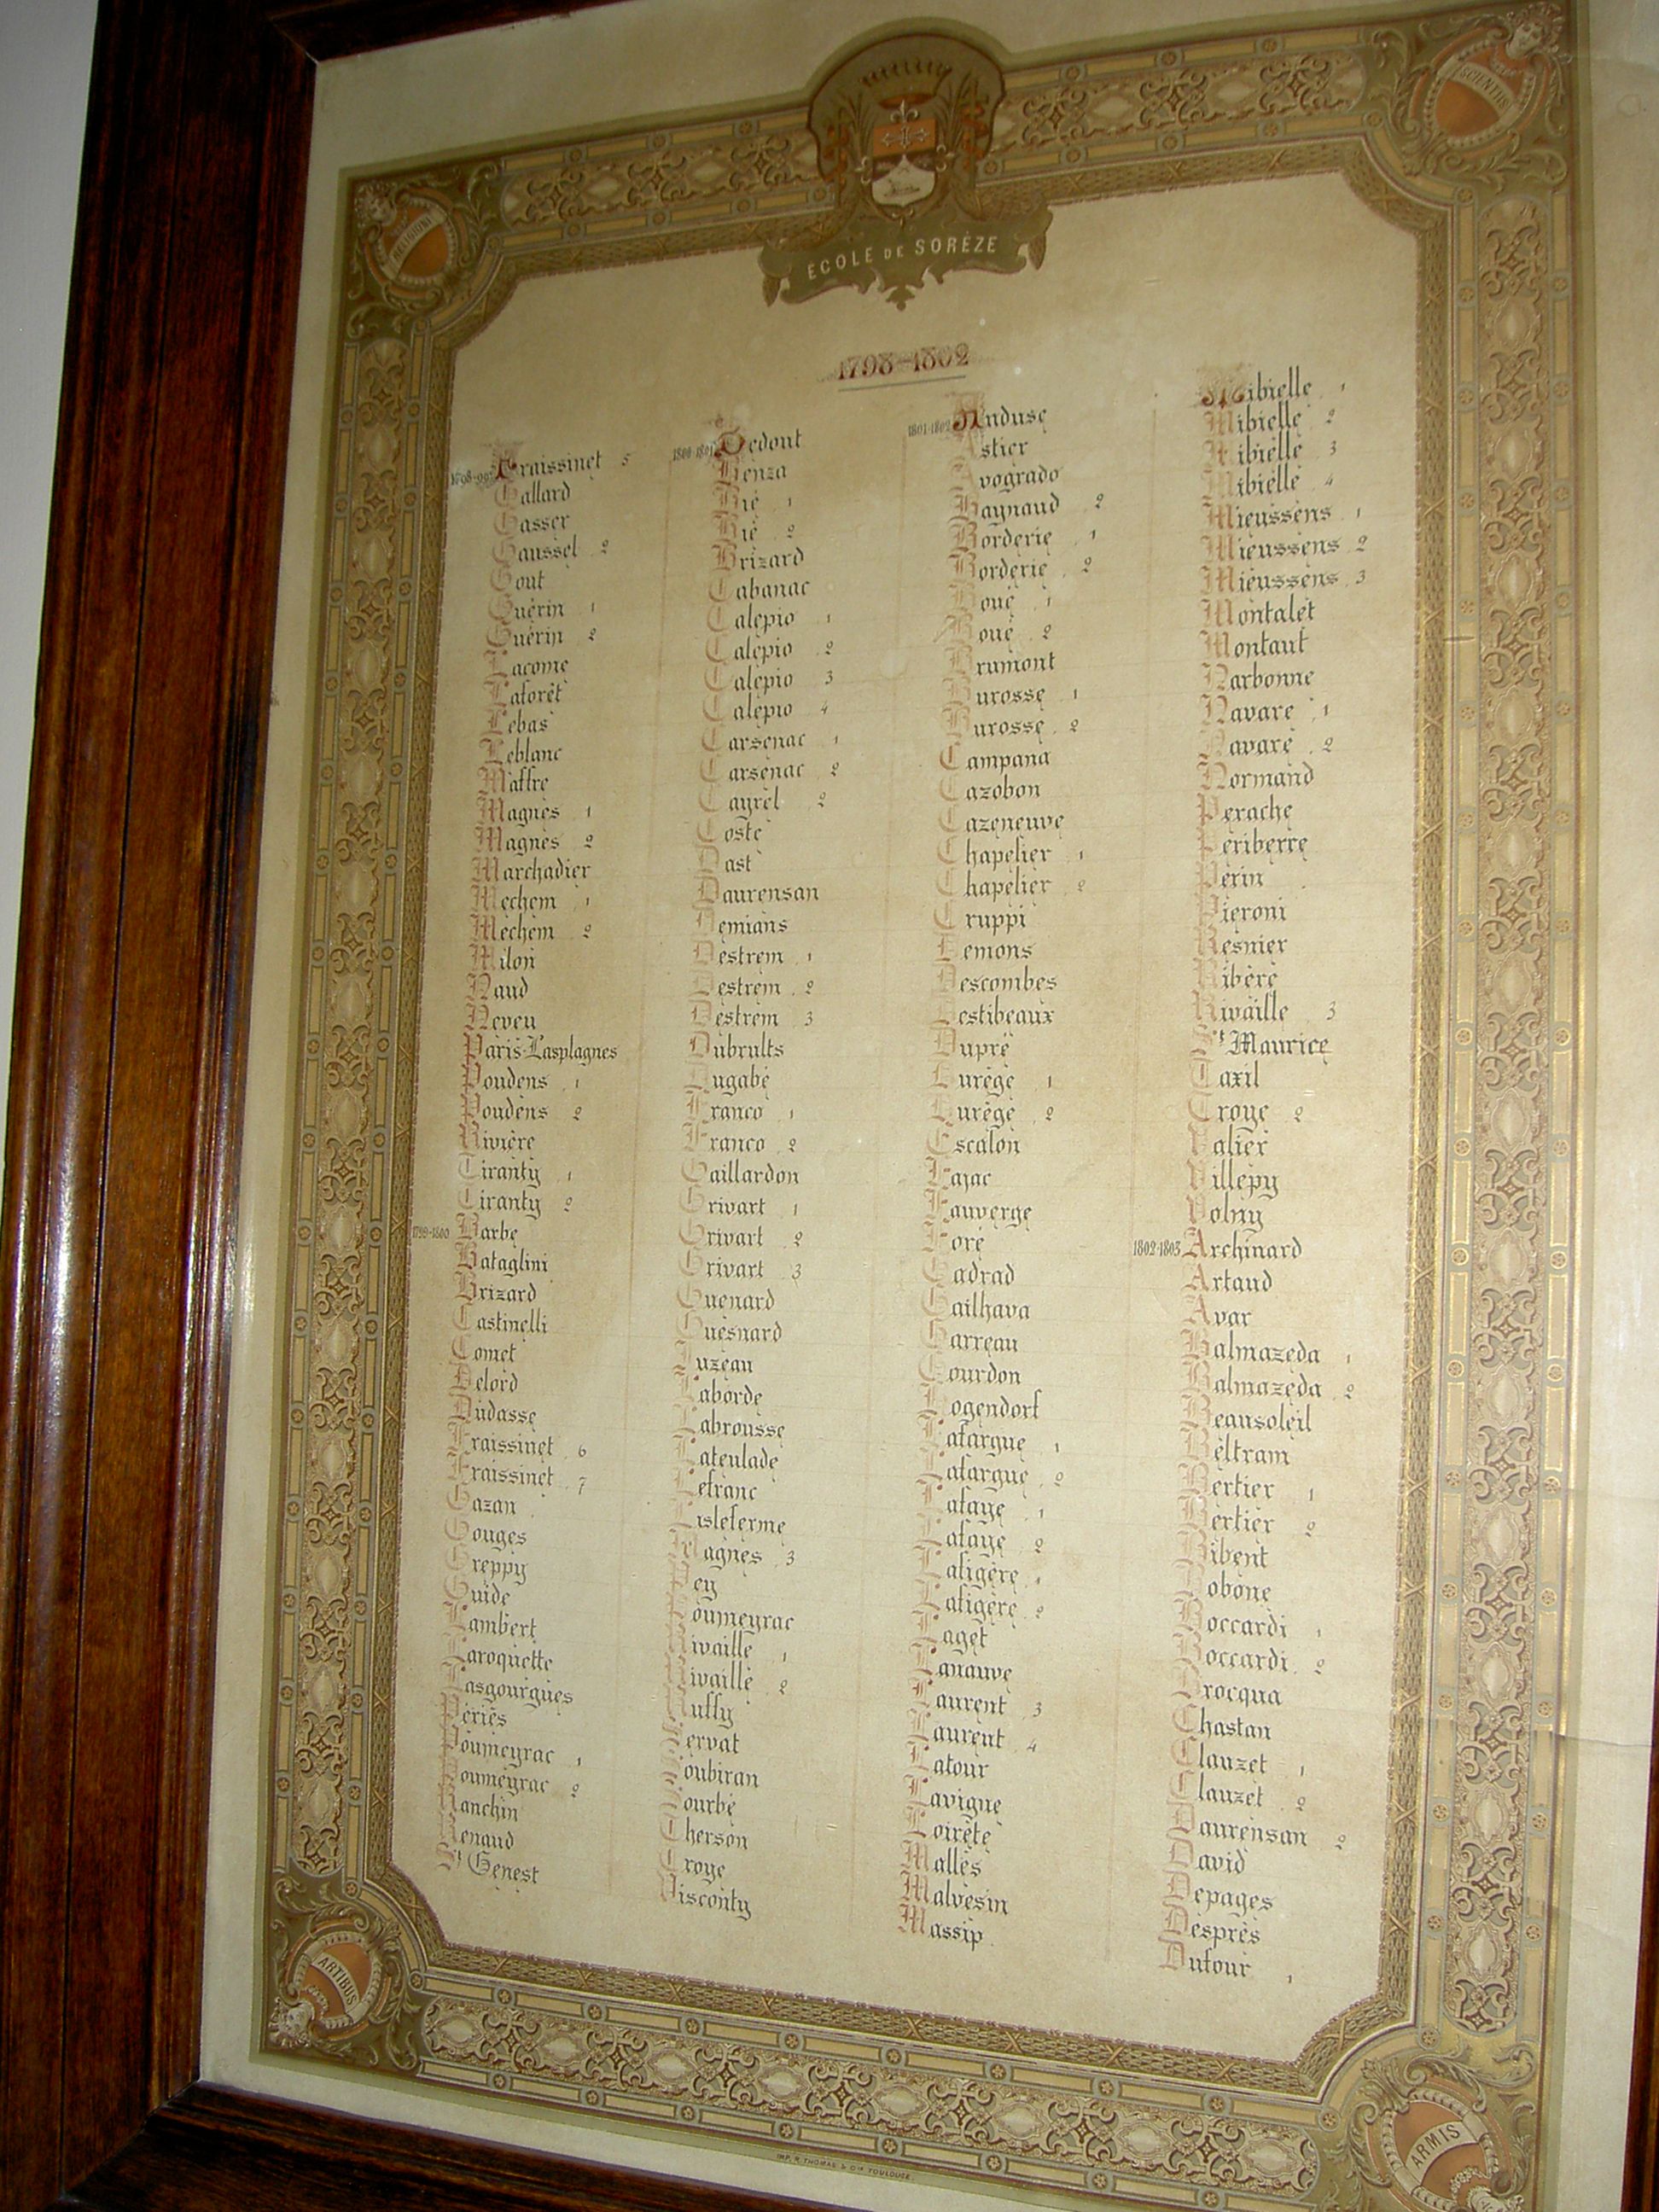 SCIENTIIS
RELIGIONI
ÉCOLE DE SORÈZE
1798-1802
1798-99 Fraissinet 5
Gallard
Gasser
Gaussel 2
Gout
Guérin 1
Guérin 2
Lacome
Laforêt
Lebas
Leblanc
Maffre
Magnès 1
Magnès 2
Marchadier
Mechem 1
Mechem 2
Milon
Naud
Neveu
Paris-Lasplagnes
Poudens 1
Poudens 2
Rivière
Tiranty 1
Tiranty 2
1799-1800 Barbe
Bataglini
Brizard
Castinelli
Comet
Delord
Dudasse
Fraissinet 6
Fraissinet 7
Gazan
Gouges
Greppy
Guide
Lambert
Laroquette
Lasgourgues
Périès
Poumeyrac 1
Poumeyrac 2
Ranchin
Renaud
St Genest
1800-1801 Bedout
Benza
Bié 1
Bié 2
Brizard
Cabanac
Calepio 1
Calepio 2
Calepio 3
Calepio 4
Carsenac 1
Carsenac 2
Cayrel 2
Coste
Dast
Daurensan
Demians
Destrem 1
Destrem 2
Destrem 3
Dubrults
Dugabé
Franco 1
Franco 2
Gaillardon
Grivart 1
Grivart 2
Grivart 3
Guenard
Guesnard
Juzeau
Laborde
Labrousse
Lateulade
Lefranc
Lisleferme
Magnès 3
Pey
Poumeyrac
Rivaille 1
Rivaille 2
Ruffy
Servat
Soubiran
Sourbé
Therson
Troye
Visconty
1801-1802 Anduse
Astier
Avogrado
Baynaud 2
Borderie 1
Borderie 2
Boué 1
Boué 2
Brumont
Burosse 1
Burosse 2
Campana
Cazobon
Cazeneuve
Chapelier 1
Chapelier 2
Cruppi
Demons
Descombes
Destibeaux
Dupré
Durége 1
Durége 2
Escalon
Fajac
Fauverge
Foré
Gadrad
Gailhava
Garreau
Gourdon
Hogendorf
Lafargue 1
Lafargue 2
Lafaye 1
Lafaye 2
Lafigère 1
Lafigère 2
Laget
Lanauve
Laurent 3
Laurent 4
Latour
Lavigne
Loirète
Mallès
Malvesin
Massip
Mibielle 1
Mibielle 2
Mibielle 3
Mibielle 4
Mieussens 1
Mieussens 2
Mieussens 3
Montalet
Montaut
Narbonne
Navare 1
Navare 2
Normand
Perache
Periberre
Perin
Pieroni
Resnier
Ribère
Rivaille 3
St Maurice
Taxil
Troye 2
Valier
Villepy
Volny
1802-1803 Archinard
Artaud
Avar
Balmazeda 1
Balmazeda 2
Beausoleil
Beltram
Bertier 1
Bertier 2
Bibent
Bobone
Boccardi 1
Boccardi 2
Brocqua
Chastan
Clauzet 1
Clauzet 2
Daurensan 2
David
Depages
Desprès
Dufour 1
ARTIBUS
ARMIS
IMP. R. THOMAS & Cie TOULOUSE.